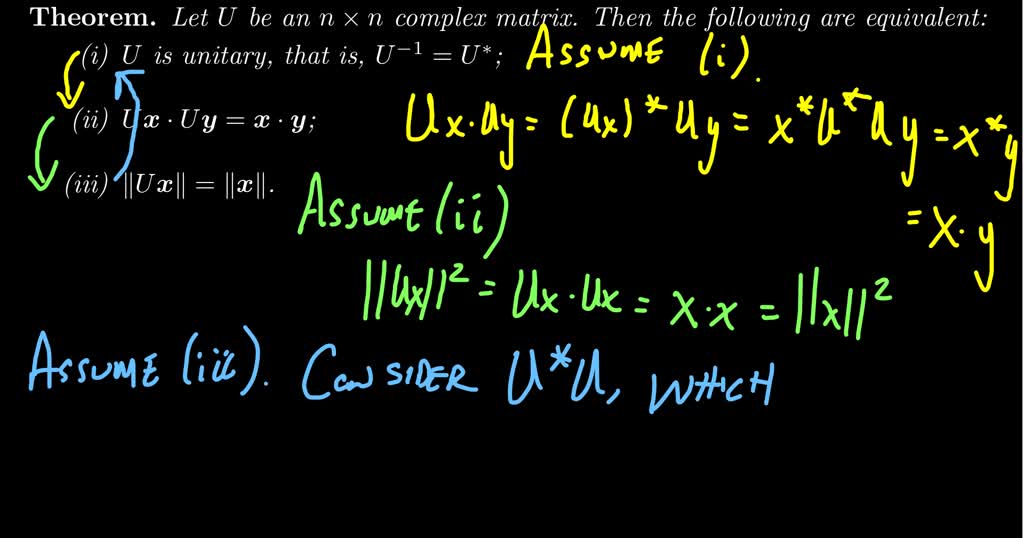 Theorem. Let U be an n × n complex matrix. Then the following are equivalent:
(i) U is unitary, that is, U⁻¹ = U*; ASSUME (i).
(ii) Ux · Uy = x · y; Ux·Uy = (Ux)*Uy = x*U*Uy = x*y
(iii) ‖Ux‖ = ‖x‖.
= x·y
ASSUME (ii)
||Ux||² = Ux·Ux = x·x = ||x||²
ASSUME (iii). CONSIDER U*U, WHICH